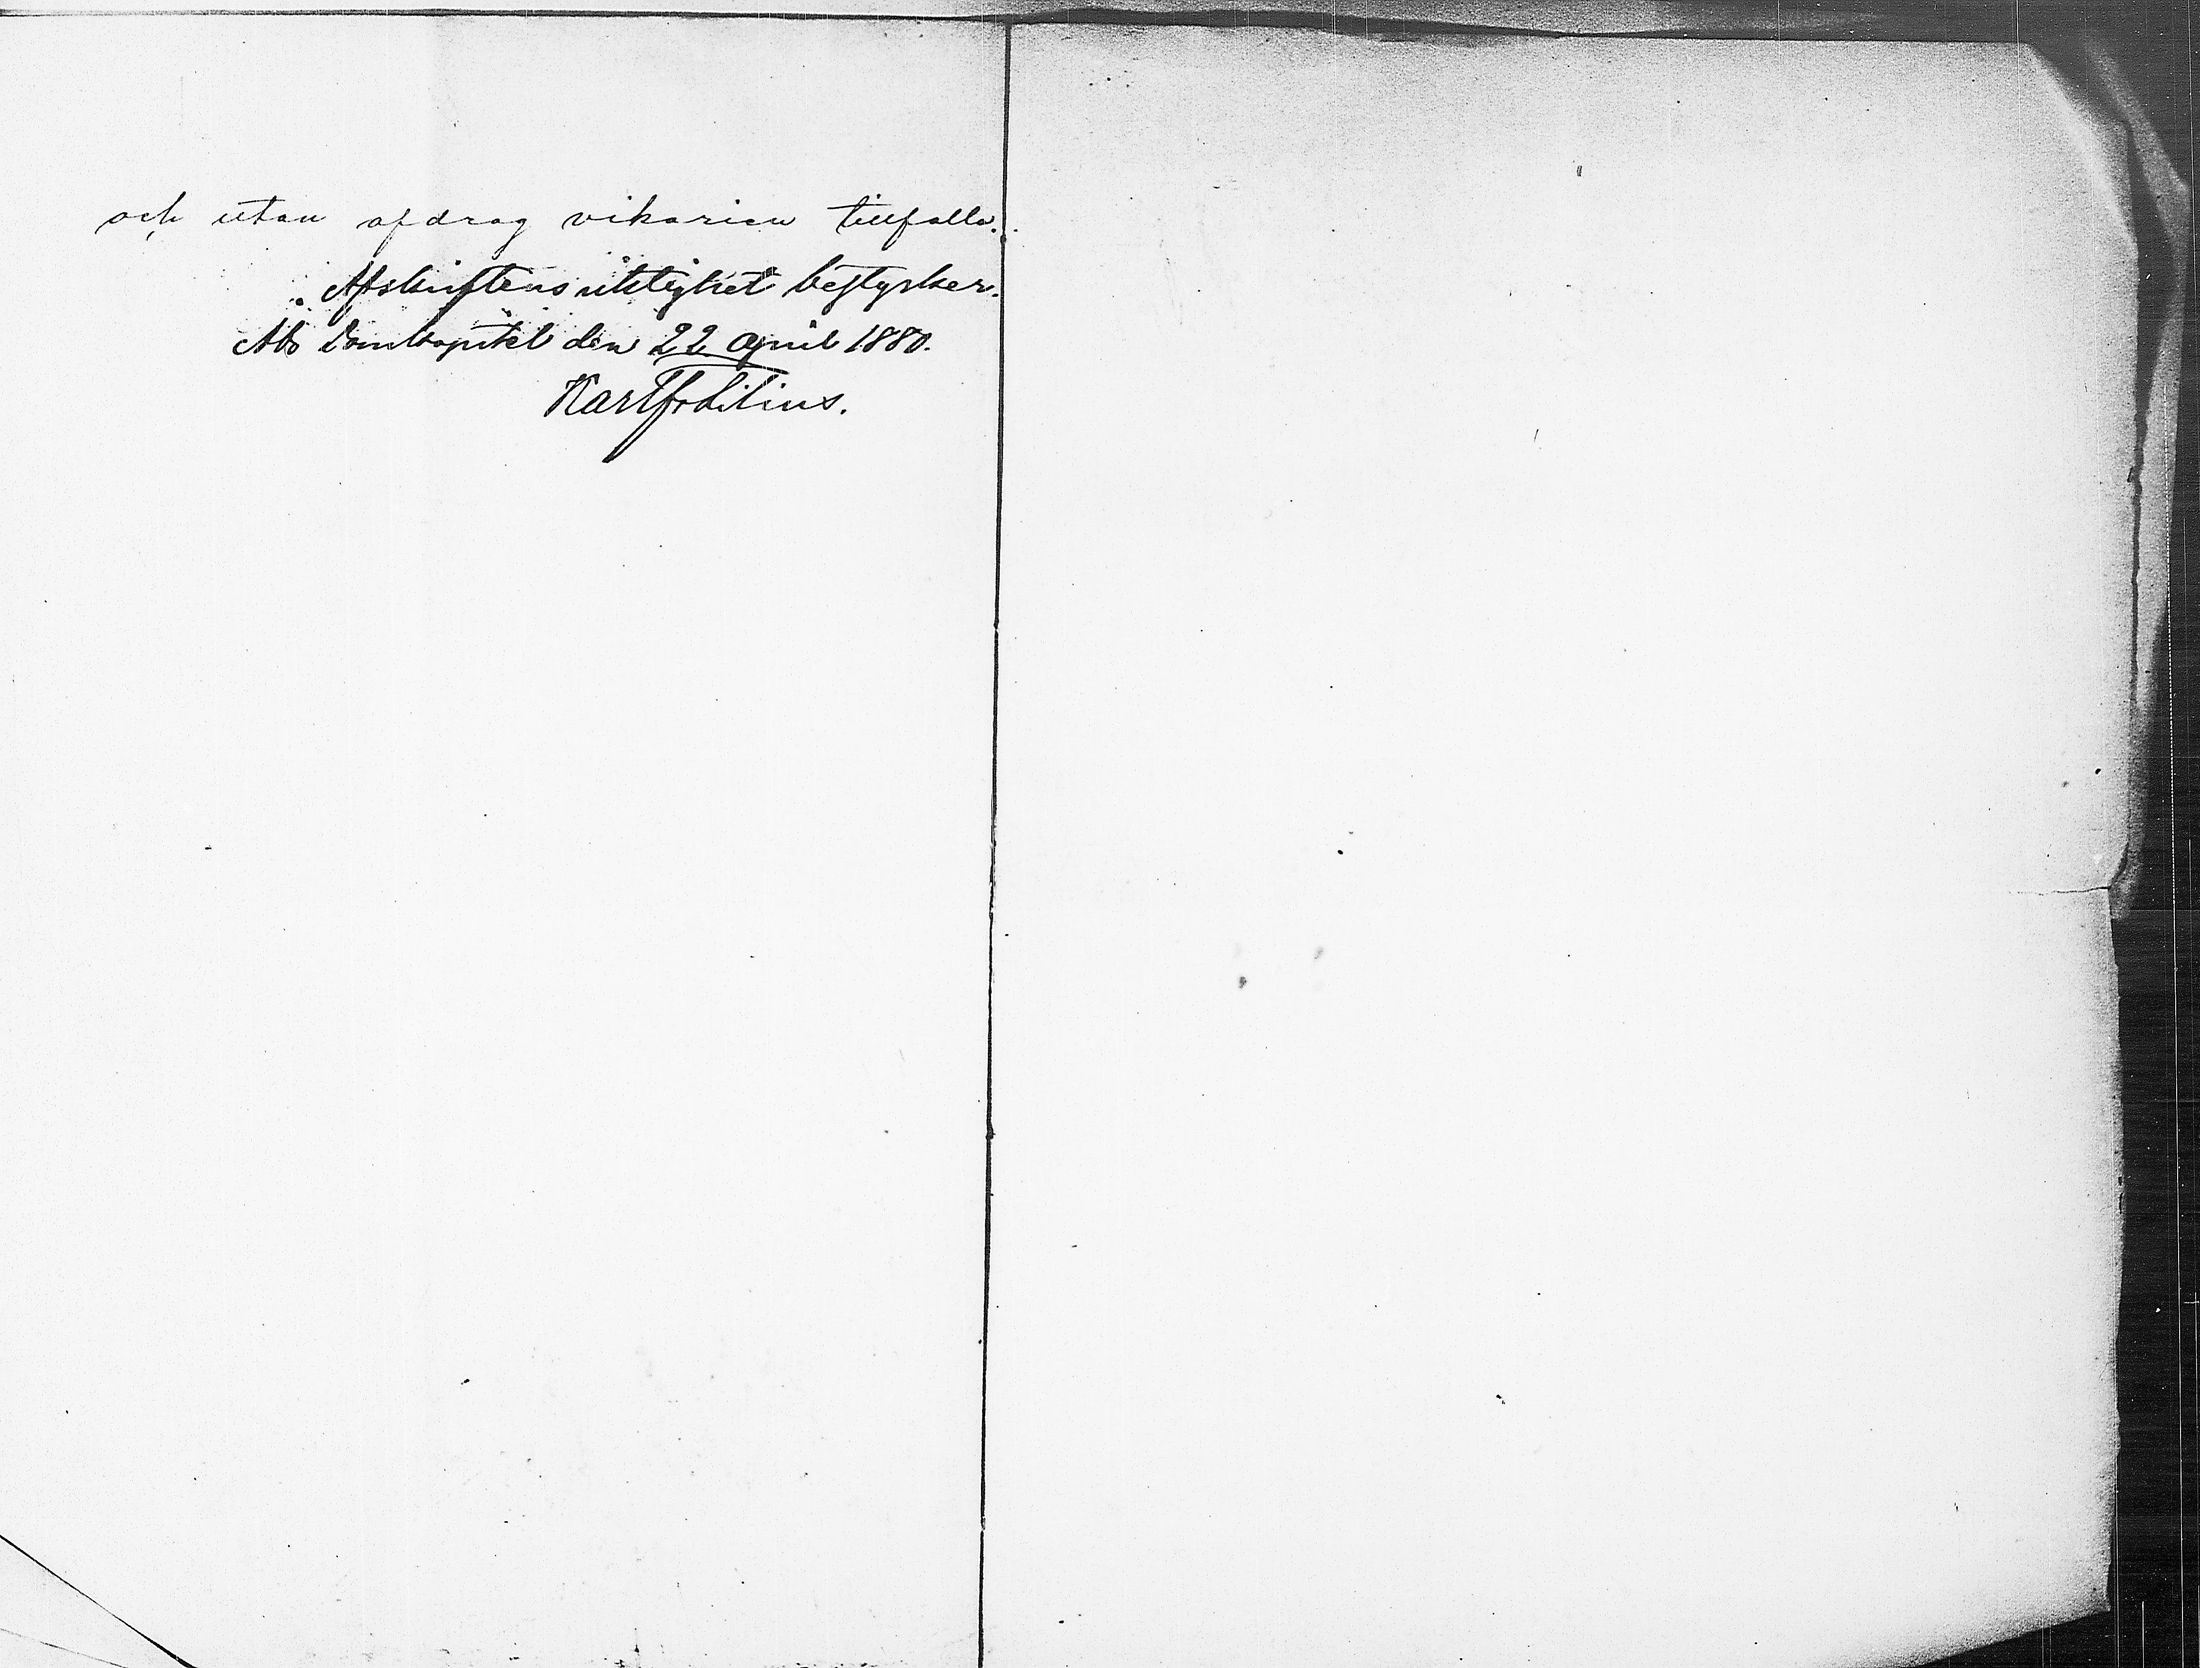 och utan afdrag vikarien tillfalla.
Afskriftens riktighet bestyrker.
Åbo Domkapitel den 22 april 1880.
Karl